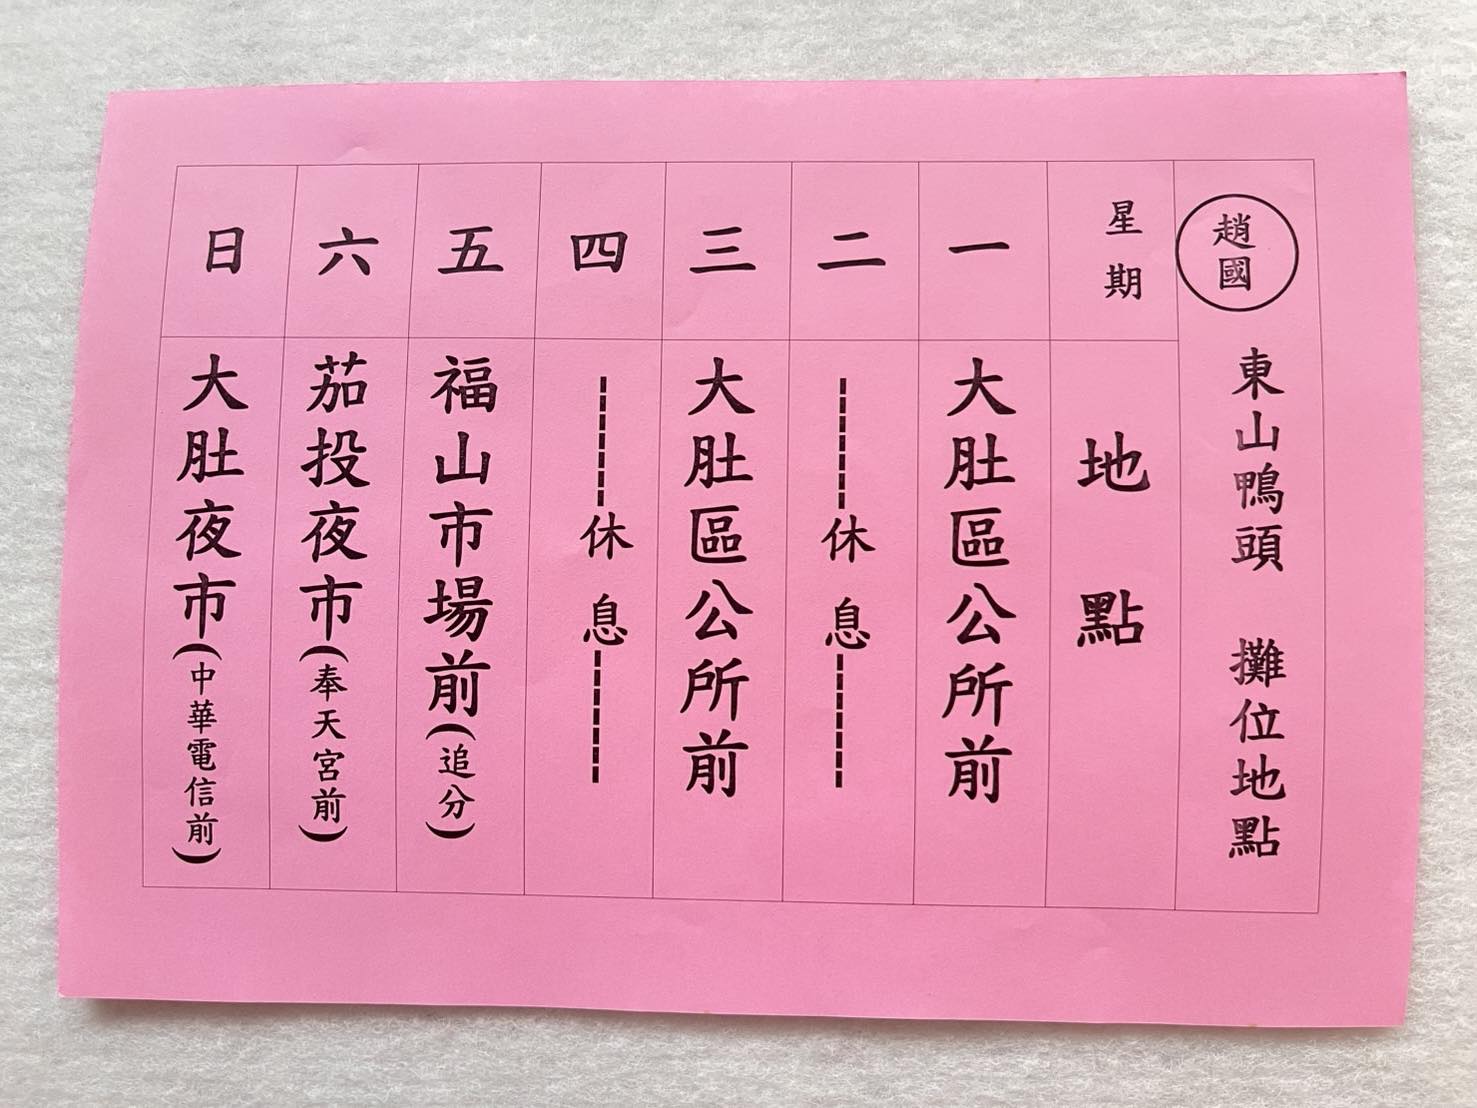 趙國 東山鴨頭 攤位地點
星期 地點
一 大肚區公所前
二 ------休息------
三 大肚區公所前
四 ------休息------
五 福山市場前(追分)
六 茄投夜市(奉天宮前)
日 大肚夜市(中華電信前)